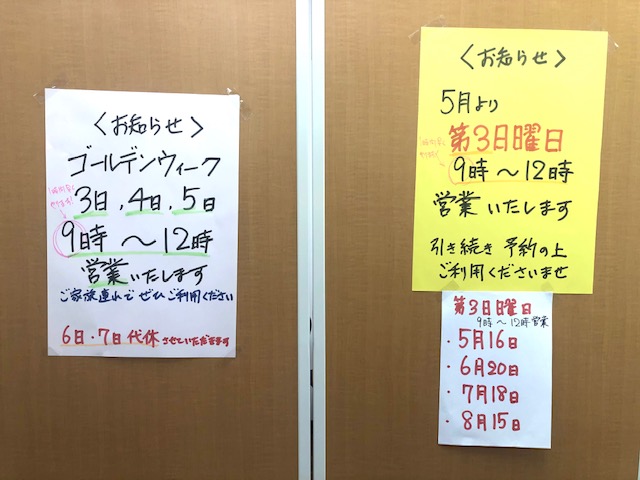 〈お知らせ〉
ゴールデンウィーク
3日,4日,5日
9時〜12時
営業いたします
ご家族連れで ぜひご利用ください
6日・7日代休させていただきます
〈お知らせ〉
5月より
第3日曜日
9時〜12時
営業いたします
引き続き 予約の上
ご利用くださいませ
第3日曜日
9時〜12時営業
・5月16日
・6月20日
・7月18日
・8月15日